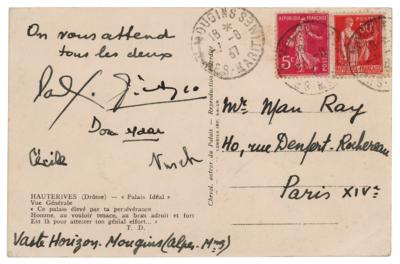 On vous attend
tous les deux
Paul. Picasso
Dora Maar
Cécile Nusch
HAUTERIVES (Drôme) - « Palais Idéal »
Vue Générale
« Ce palais élevé par ta persévérance
Homme, au vouloir tenace, au bras adroit et fort
Est là pour attester ton génial effort »
T. D.
Vaste Horizon. Mougins (Alpes-Mmes)
Cheval, auteur du Palais - Reproduction interdite
MOUGINS
18 *
-9
37
ALPES-MARITIMES
REPUBLIQUE FRANÇAISE
5c
POSTES
50c
Mr Man Ray
40, rue Denfert-Rochereau
Paris XIVe